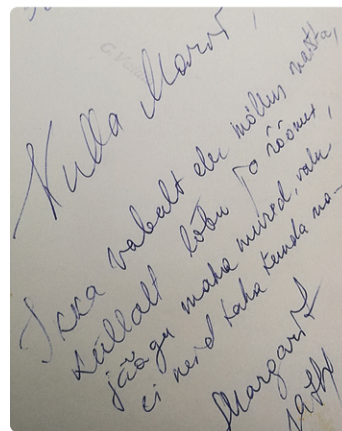 Kulla Marvi,
Ikka vabalt elu möllus
küllalt lõbu ja rõõmu,
jäägu maha mured, valu
ei neid taha kanda na-
Margarit